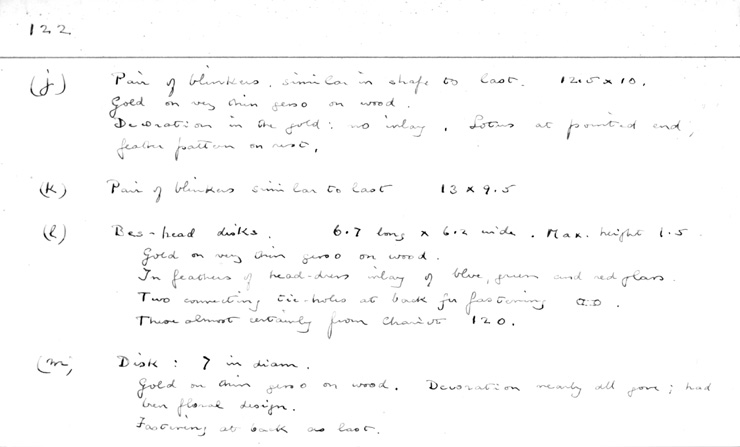 122
(j) Pair of blinkers, similar in shape to last. 12.5 x 10.
Gold on very thin gesso on wood.
Decoration in the gold: no inlay. Lotus at pointed end,
feather pattern on rest.
(k) Pair of blinkers similar to last 13 x 9.5
(l) Bes-head disks. 6.7 long x 6.2 wide. Max. height 1.5.
Gold on very thin gesso on wood.
In feathers of head-dress inlay of blue, green and red glass.
Two connecting tie-holes at back for fastening
These almost certainly from Chariot 120.
(m) Disk: 7 in diam.
Gold on thin gesso on wood. Decoration nearly all gone; had
been floral design.
Fastening at back as last.